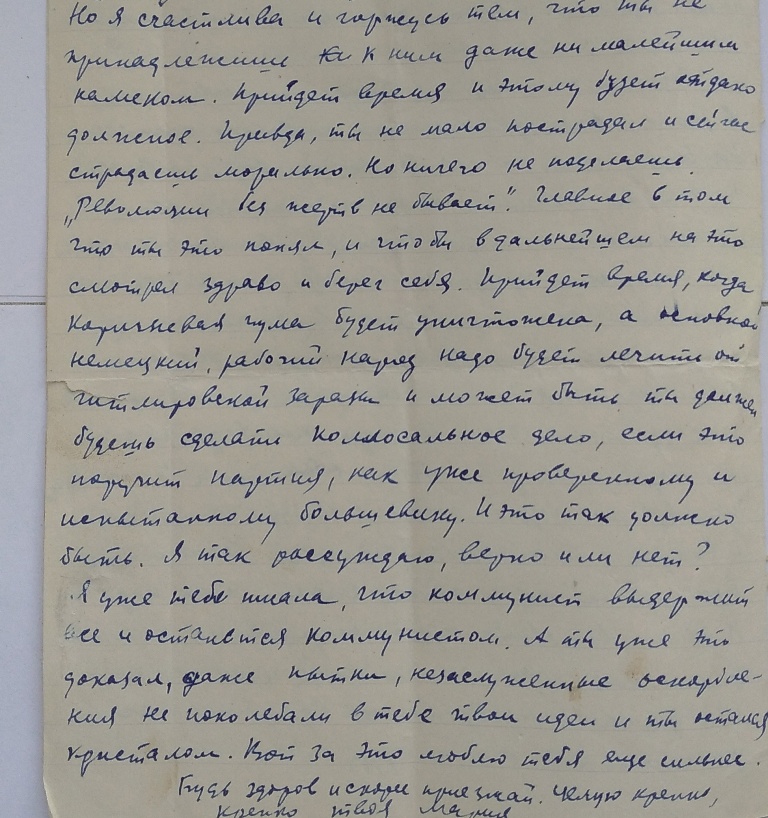 Но я счастлива и горжусь тем, что ты не
принадлежишь к ним даже ни малейшим
намеком. Прийдет время и этому будет отдано
должное. Правда, ты не мало пострадал и сейчас
страдаешь морально. Но ничего не поделаешь
„Революции без жертв не бывает". Главное в том
что ты это понял, и чтобы в дальнейшем на это
смотрел здраво и берег себя. Прийдет время, когда
коричневая чума будет уничтожена, а основной
немецкий, рабочий народ надо будет лечить от
гитлировской заразы и может быть ты должен
будешь сделать коллосальное дело, если это
поручит партия, как уже проверенному и
испытанному большевику. И это так должно
быть. Я так рассуждаю, верно или нет?
Я уже тебе писала, что коммунист выдержит
все и останется коммунистом. А ты уже это
доказал, даже пытки, незаслуженные оскорбле-
ния не поколебали в тебе твои идеи и ты остался
кристалом. Вот за это люблю тебя еще сильнее.
Будь здоров и скоре приезжай. Целую крепко,
крепко твоя Мария